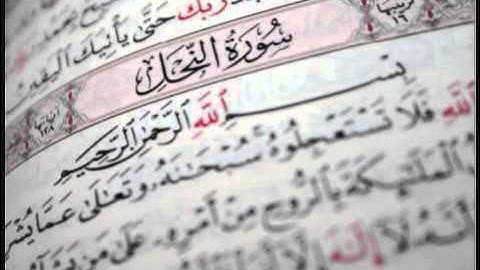 رَبَّكَ حَتَّىٰ يَأْتِيَكَ الْيَقِينُ
سُورَةُ النَّحْلِ
بِسْمِ اللَّهِ الرَّحْمَٰنِ الرَّحِيمِ
اللَّهِ فَلَا تَسْتَعْجِلُوهُ سُبْحَانَهُ وَتَعَالَىٰ عَمَّا
الْمَلَائِكَةَ بِالرُّوحِ مِنْ أَمْرِهِ عَلَىٰ مَن
أَنَّهُ لَا إِلَٰهَ إِلَّا أَنَا